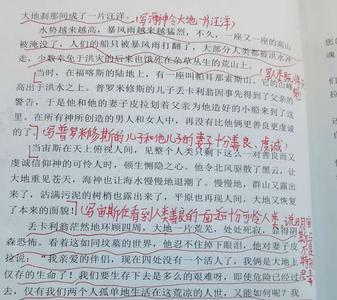 大地刹那间成了一片汪洋。(写海神令大地一片汪洋)
水势越来越高，暴风雨越来越猛烈，不久，一座又一座的高山
被淹没了，人们的船只被暴风雨打翻了，大部分人类都被洪水冲
走，少数幸免于洪灾的后来也饿死在杂草丛生的荒山上。
当时，在福喀斯的陆地上，有一座叫帕耳那索斯山，它的山峰
高出于洪水之上。普罗米修斯的儿子丢卡利翁因事先得到了父亲的
警告，于是他和他的妻子皮拉划着父亲为他造好的小船来到了这
里。在所有神所创造的男人和女人中，再没有比他俩更善良更虔诚
的了 写普罗米修斯的儿子和他儿子的妻子十分善良、虔诚
当宙斯在天上俯视人间，见整个人类只剩下这么一对善良而又
虔诚信神的可怜人时，顿生恻隐之心。他令北风驱散了黑云，让
大地重见苍天，海神也让海水慢慢地退潮了。慢慢地，群山又露出
来了，沾满污泥的树梢也露出来了，平原也再现人间，大地又恢复
了本来的面貌 写宙斯在看到人类善良的一面后十分可怜人类
丢卡利翁茫然地环顾四周，大地一片荒芜，处处死寂，显得阴
森恐怖。看着这如同坟墓的世界，他忍不住掉下眼泪，他对妻子皮
拉说：“我亲爱的伴侣，现在四处没有一个活人了，我俩是大地上
仅存的生命了！我们要生存下去是多么的艰难呀，即使危险已经过
去，仅有我们两个人孤单地生活在这荒凉的人世，又能如何呢？我